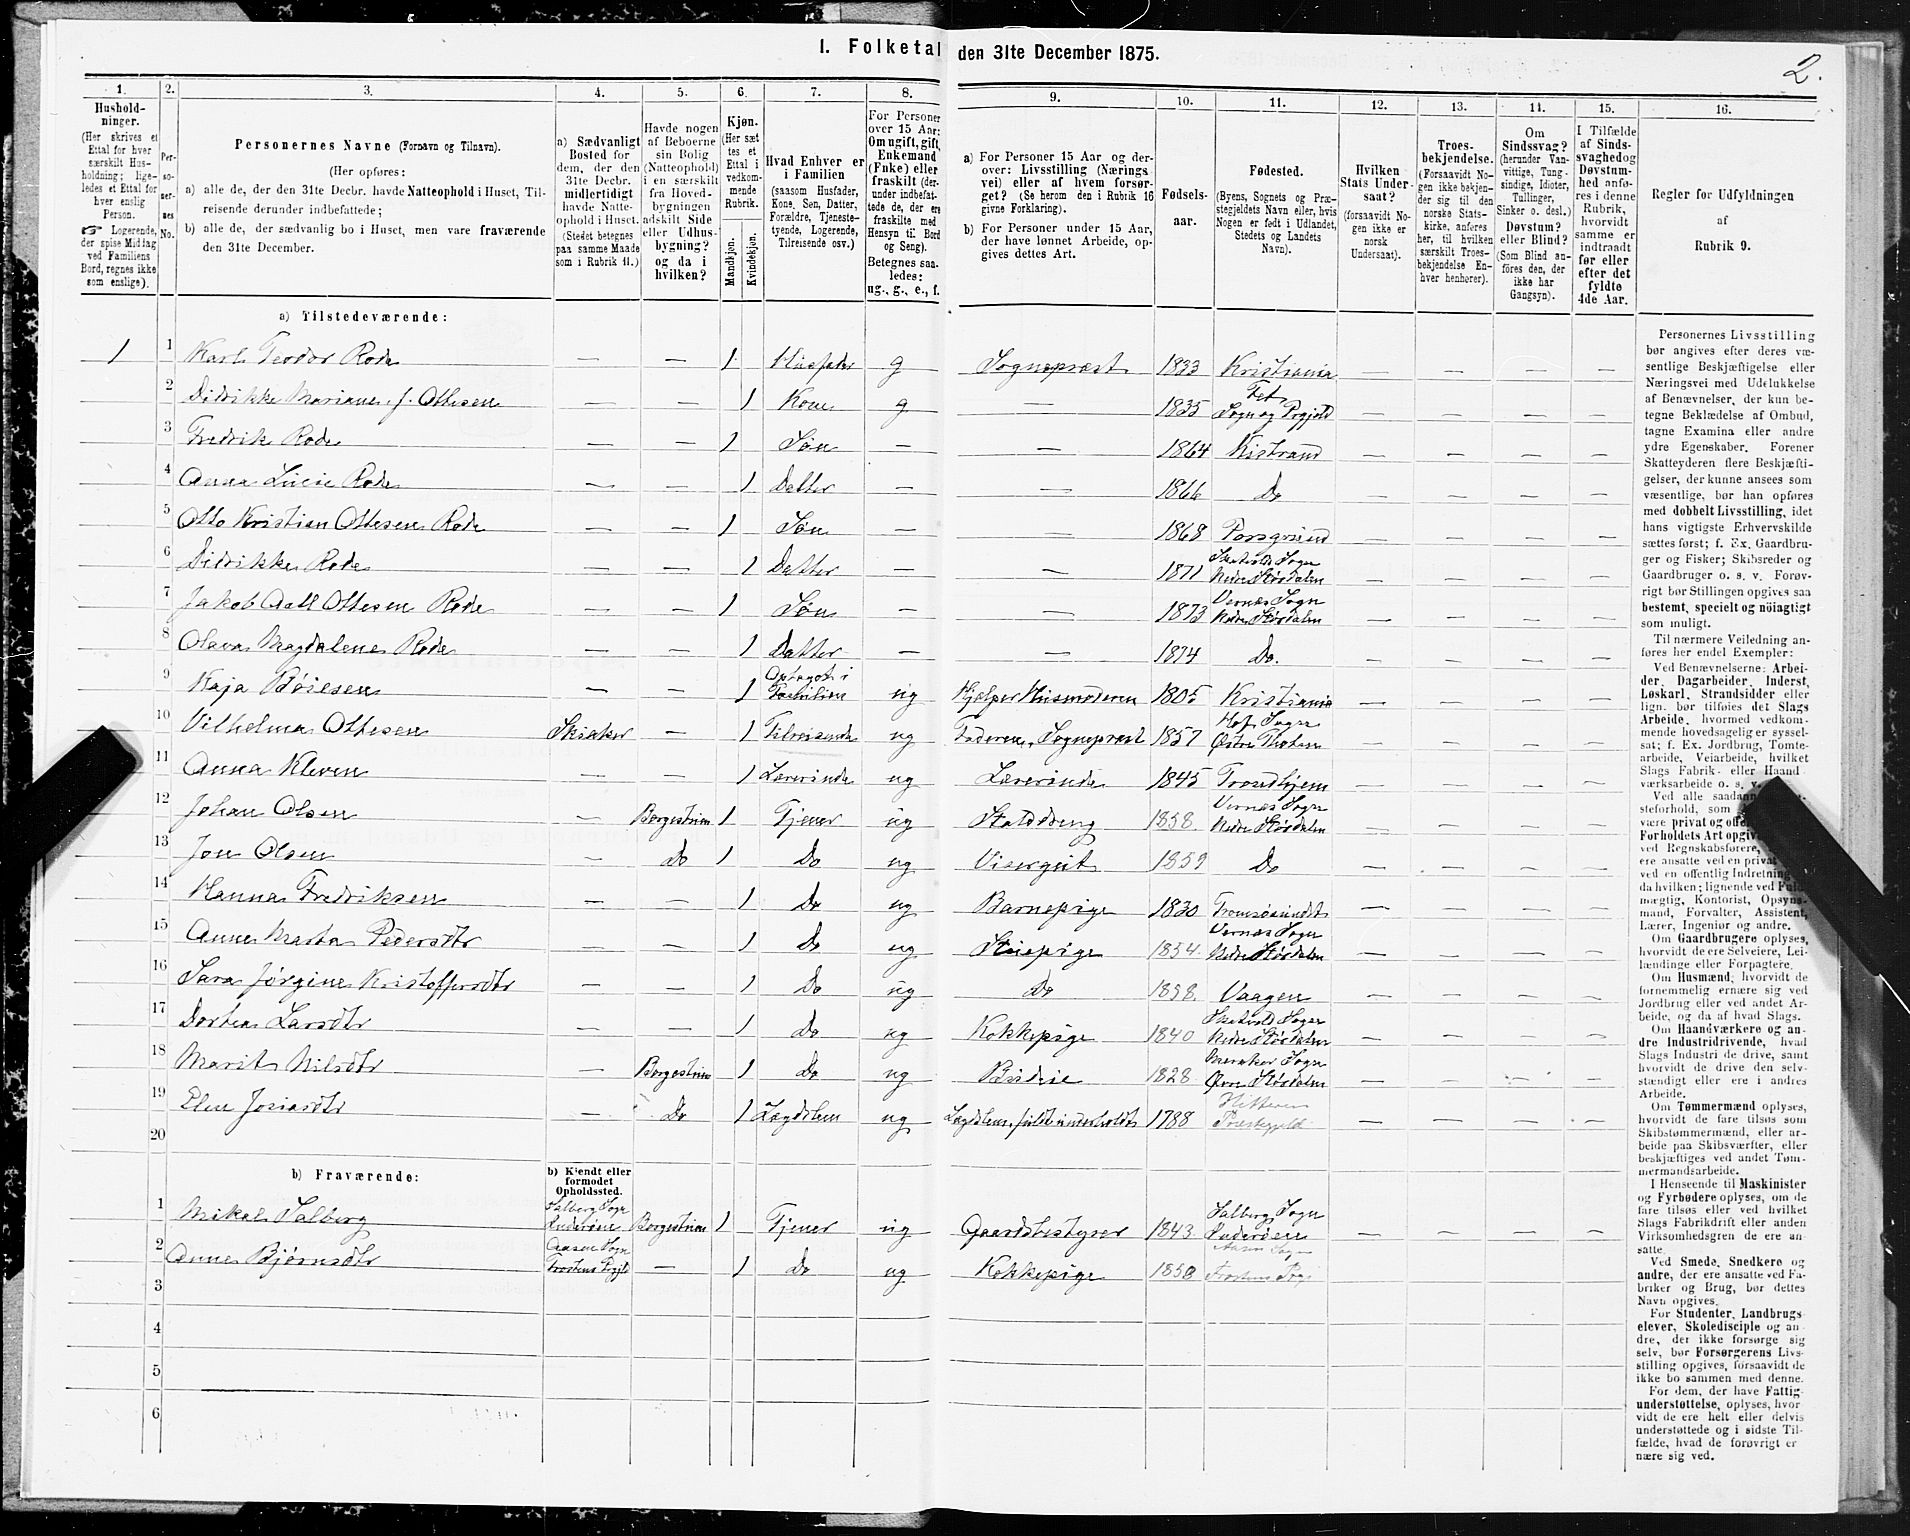 I. Folketal den 31te December 1875.
2.
1. 2. 3. 4. 5. 6. 7. 8. 9. 10. 11. 12. 13. 14. 15. 16.
Hushold-
ninger.
(Her skrives et
Ettal for hver
særskilt Hus-
holdning; lige-
ledes et Ettal for
hver enslig
Person.
☞ Logerende,
der spise Middag
ved Familiens
Bord, regnes ikke
som enslige).
Per-
so-
ner-
nes
No.
Personernes Navne (Fornavn og Tilnavn).
(Her opføres:
a) alle de, der den 31te Decbr. havde Natteophold i Huset, Til-
reisende derunder indbefattede;
b) alle de, der sædvanlig bo i Huset, men vare fraværende
den 31te December.
a) Sædvanligt
Bosted for
dem, der den
31te Decbr.
midlertidigt
havde Natte-
ophold i Huset.
(Stedet betegnes
paa samme Maade
som i Rubrik 11.)
Havde nogen
af Beboerne
sin Bolig
(Natteophold)
i en særskilt
fra Hoved-
bygningen
adskilt Side
eller Udhus-
bygning?
og da i
hvilken?
Kjøn.
(Her sæt-
tes et
Ettal i
vedkom-
mende
Rubrik.
Mandkjøn.
Kvindekjøn.
Hvad Enhver er
i Familien
(saasom Husfader,
Kone, Søn, Datter,
Forældre, Tjeneste-
tyende, Logerende,
Tilreisende osv.)
For Personer
over 15 Aar:
Om ugift, gift,
Enkemand
(Enke) eller
fraskilt (der-
under indbefat-
tede de, der ere
fraskilte med
Hensyn til Bord
og Seng).
Betegnes saa-
ledes:
ug., g., e., f.
a) For Personer 15 Aar og der-
over: Livsstilling (Nærings-
vei) eller af hvem forsør-
get? (Se herom den i Rubrik 16
givne Forklaring).
b) For Personer under 15 Aar,
der have lønnet Arbeide, op-
gives dettes Art.
Fødsels-
aar.
Fødested.
(Byens, Sognets og Præ-
stegjeldets Navn eller, hvis
Nogen er født i Udlandet,
Stedets og Landets
Navn).
Hvilken
Stats Under-
saat?
(forsaavidt No-
gen ikke er
norsk
Undersaat).
Troes-
bekjendelse.
(Forsaavidt No-
gen ikke bekjen-
der sig til den
norske Stats-
kirke, anføres
her, til hvilken
særskilt Troes-
bekjendelse En-
hver henhører).
Om
Sindssvag?
(herunder Van-
vittige, Tung-
sindige, Idioter,
Tullinger,
Sinker o. desl.)
Døvstum?
eller Blind?
(Som Blind an-
føres den, der
ikke har
Gangsyn).
I Tilfælde
af Sinds-
svaghed og
Døvstum-
hed anfø-
res i denne
Rubrik,
hvorvidt
samme er
indtraadt
før eller
efter det
fyldte
4de Aar.
Regler for Udfyldningen
af
Rubrik 9.
a) Tilstedeværende:
1 1 Karl Teodor Rode — — 1 Husfader g Sognepræst 1833 Kristiania — — — —
2 Didrikke Mariane f. Ottesen — — 1 Kone g — 1835 Fet Sogn og Prgjeld — — — —
3 Fredrik Rode — — 1 Søn — — 1864 Kistrand — — — —
4 Anna Lucie Rode — — 1 Datter — — 1866 Do — — — —
5 Otto Kristian Ottesen Rode — — 1 Søn — — 1868 Porsgrund — — — —
6 Didrikke Rode — — 1 Datter — — 1871 Skatvold Sogn Nedre Størdalen — — — —
7 Jakob Aall Ottesen Rode — — 1 Søn — — 1873 Vernæs Sogn Nedre Størdalen — — — —
8 Olava Magdalene Rode — — 1 Datter — — 1874 Do. — — — —
9 Kaja Boiesen — — 1 Optaget i Familien ug Hjælper Husmoderen 1805 Kristiania — — — —
10 Vilhelma Ottesen Skiaker — 1 Tilreisende ug Faderen, Sognepræst 1857 Hof Sogn Østre Thoten — — — —
11 Anna Kleven — — 1 Lærerinde ug Lærerinde 1845 Trondhjem —
12 Johan Olsen — Borgestuen 1 Tjener ug Stalddreng 1858. Vernæs Sogn Nedre Størdalen — — — —
13 Jon Olsen — Do 1 Do ug Visergut 1859 Do — — — —
14 Hanna Fredriksen — — 1 Do ug Barnepige 1830 Tromsøsundet — — — —
15 Anne Marta Pedersdtr — — 1 Do ug Stuepige 1854. Vernæs Sogn Nedre Størdalen — — — —
16 Sara Jørgine Kristoffersdtr — — 1 Do ug Do 1858. Vaagen — — — —
17 Dortea Larsdtr — — 1 Do ug Kokkepige 1840 Skatvold Sogn Nedre Størdalen — — — —
18 Marit Nilsdtr — Borgestuen 1 Do ug Budeie 1828 Meraker Sogn Øvre Størdalen — — — —
19 Elen Josiasdtr — Do 1 Lægdslem ug Lægdslem, fuldt underholdt 1788 Hitteren Præstegjeld — — — —
20
b) Fraværende:
b) Kjendt eller
formodet
Opholdssted.
1 Mikal Salberg Salberg Sogn Inderøen Borgestuen 1 Tjener ug Gaardsbestyrer 1843 Salberg Sogn Inderøen — — — —
2 Anne Bjørnsdtr Aasen Sogn Frostens Prgjld — 1 Do ug Kokkepige 1858 Aasen Sogn Frostens Prg — — — —
3
4
5
6
Personernes Livsstilling
bør angives efter deres væ-
sentlige Beskjæftigelse eller
Næringsvei med Udelukkelse
af Benævnelser, der kun be-
tegne Beklædelse af Ombud,
tagne Examina eller andre
ydre Egenskaber. Forener
Skatteyderen flere Beskjæfti-
gelser, der kunne ansees som
væsentlige, bør han opføres
med dobbelt Livsstilling, idet
hans vigtigste Erhvervskilde
sættes først; f. Ex. Gaardbru-
ger og Fisker; Skibsreder og
Gaardbruger o. s. v. Forøv-
rigt bør Stillingen opgives saa
bestemt, specielt og nöiagtigt
som muligt.
Til nærmere Veiledning an-
føres her endel Exempler:
Ved Benævnelserne: Arbei-
der, Dagarbeider, Inderst,
Løskarl, Strandsidder eller
lign. bør tilføies det Slags
Arbeide, hvormed vedkom-
mende hovedsagelig er syssel-
sat; f. Ex. Jordbrug, Tomte-
arbeide, Veiarbeide, hvilket
Slags Fabrik- eller Haand-
værksarbeide o. s. v.
Ved alle
steforhold, som
være privat og
Forholdets Art
ved Regnskabsførere,
ere ansatte ved en privat
ved en offentlig Indretning
da hvilken; lignende ved Fuld-
mægtig, Kontorist, Opsyns-
mand, Forvalter, Assistent,
Lærer, Ingeniør og andre.
Om Gaardbrugere oplyses,
hvorvidt de ere Selveiere, Lei-
lændinge eller Forpagtere.
Om Husmænd, hvorvidt de
fornemmelig ernære sig ved
Jordbrug eller ved andet Ar-
beide, og da af hvad Slags.
Om Haandværkere og an-
dre Industridrivende, hvad
Slags Industri de drive, samt
hvorvidt de drive den selv-
stændigt eller ere i andres
Arbeide.
Om Tømmermænd oplyses,
hvorvidt de fare tilsøs som
Skibstømmermænd, eller ar-
beide paa Skibsværfter, eller
beskjæftiges ved andet Tøm-
mermandsarbeide.
I Henseende til Maskinister
og Fyrbødere oplyses, om de
fare tilsøs eller ved hvilket
Slags Fabrikdrift eller anden
Virksomhedsgren de ere an-
satte.
Ved Smede, Snedkere og
andre, der ere ansatte ved Fa-
briker og Brug, bør dettes
Navn opgives.
For Studenter, Landbrugs-
elever, Skoledisciple og an-
dre, der ikke forsørge sig
selv, bør Forsørgerens Livs-
stilling opgives, forsaavidt de
ikke bo sammen med denne.
For dem, der have Fattig-
understøttelse, oplyses, hvor-
vidt de ere helt eller delvis
understøttede og i sidste Til-
fælde, hvad de forøvrigt er
nære sig ved.